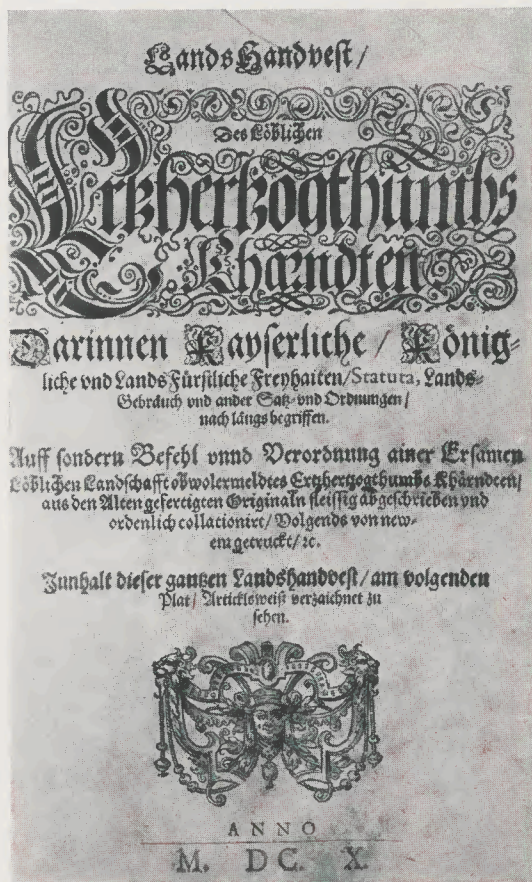 Lands Handvest /
Des Löblichen
Ertzhertzogthumbs
Khärndten
Darinnen Kayserliche / König-
liche vnd Lands Fürstliche Freyhaiten / Statuta, Lands-
Gebräuch vnd ander Satz- vnd Ordnungen /
nach längs begriffen.
Auff sondern Befehl vnnd Verordnung ainer Ersamen
Löblichen Landschafft obwolermeldtes Ertzhertzogthumbs Khärndten /
aus den Alten gefertigten Originaln fleissig abgeschrieben vnd
ordenlich collationirt / Volgends von new-
em getruckt / ꝛc.
Innhalt dieser gantzen Landshandvest / am volgenden
Plat / Articklsweiß verzaichnet zu
sehen.
ANNO
M. DC. X.